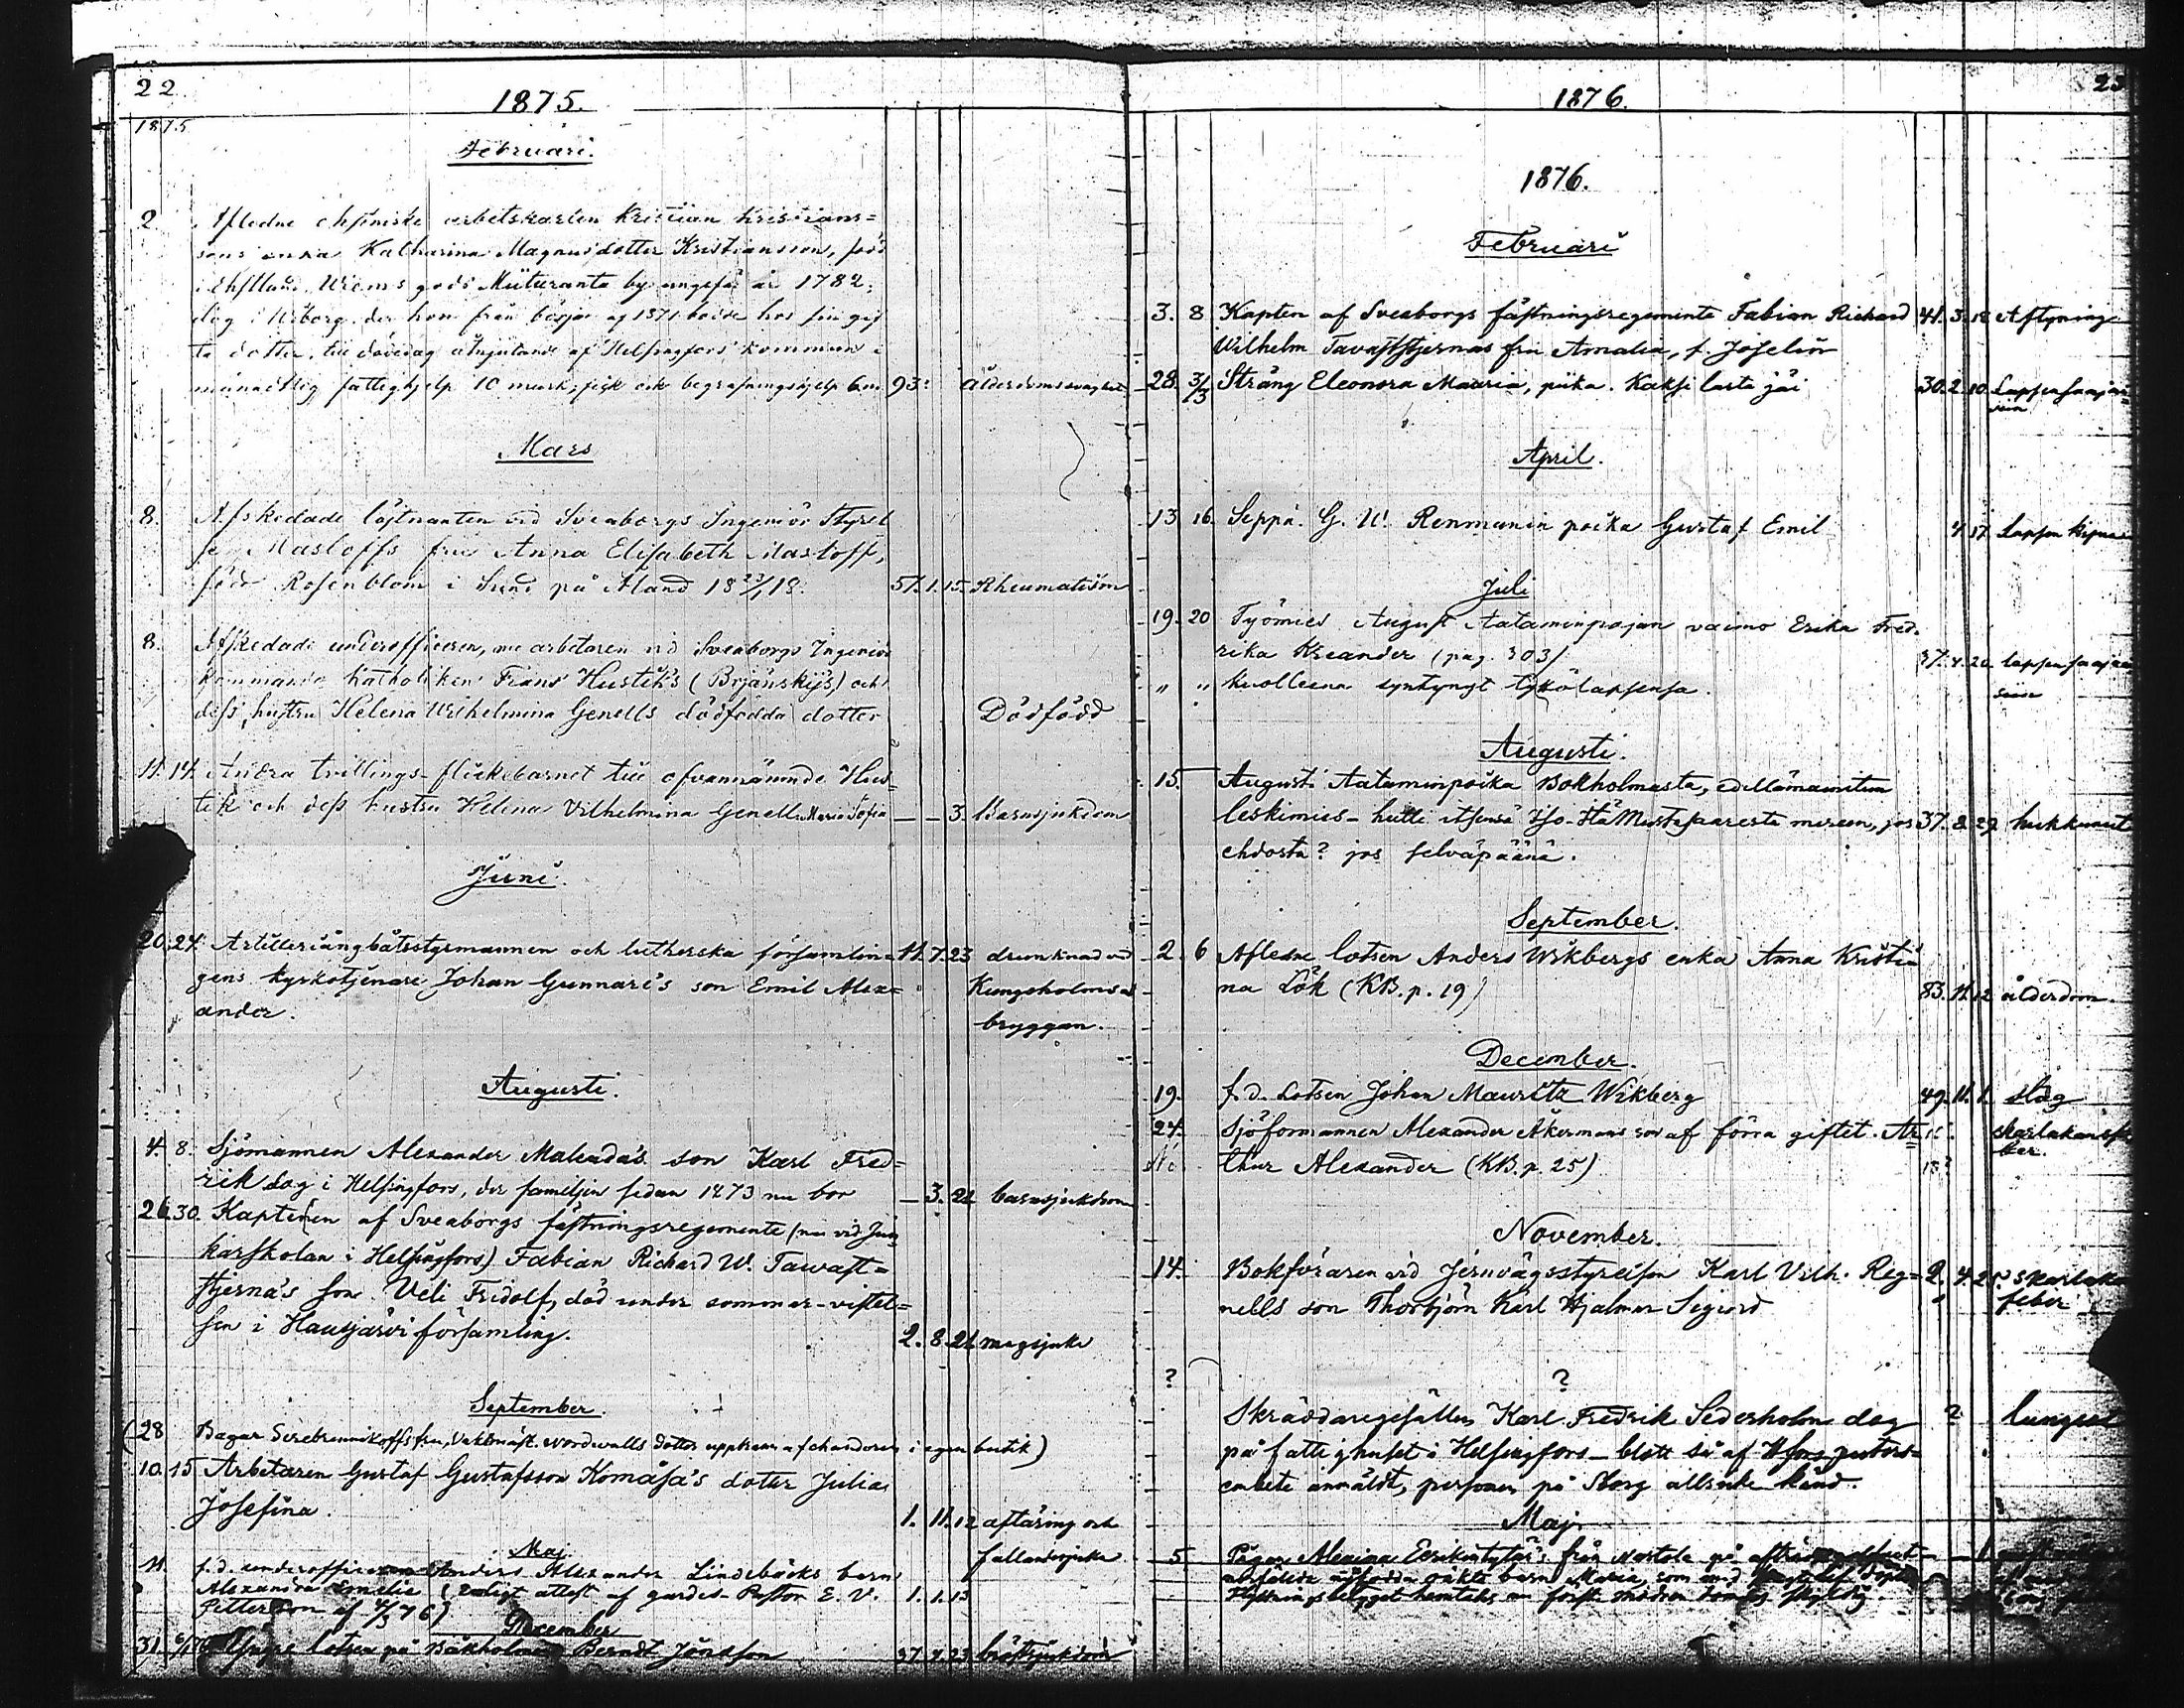 22
1875.
1875
Februari.
2. Aflidne ehstniske arbetskarlen Kristian Kristians=
sons enka Katharina Magnusdotter Kristiansson, född
i Ehstland Wiems gods by ungefär år 1782,
dog i Wiborg, der hon från början af 1871 bodde hos sin gif
ta dotter, till dödedag åtnjutande af Helsingfors kommun i
månadtlig fattighjelp 10 mark, fick ock begrafningshjelp 6 m. 93. ålderdomssvaghet
Mars
8. Afskedade löjtnanten vid Sveaborgs Ingeniör Styrel
sen Masloffs fru Anna Elisabeth Masloff,
född Rosenblom i Sund på Åland 18 23/1 18. 57. 1. 15. Rheumatism
8. Afskedade underofficeren, nu arbetaren vid Sveaborgs Ingeniör
kommando katholiken Frans Husteks (Brjanskijs) och
dess hustru Helena Wilhelmina Genells dödfödda dotter Dödfödd
11. 14. Andra tvillings-flickebarnet till ofvannämnde Hus=
tek och dess hustru Helena Vilhelmina Genell Maria Sofia — — 3. Barnsjukdom
Juni.
20. 24. Artilleriångbåtsstyrmannen och lutherska församlin= 11. 7. 23 drunknad vid
gens kyrkotjenare Johan Gunnari's son Emil Alex= Kungsholms
ander. bryggan.
Augusti.
4. 8. Sjömannen Alexander Malanda's son Karl Fred=
rik dog i Helsingfors, der familjen sedan 1873 nu bor — 3. 21 barnsjukdom
26. 30. Kaptenen af Sveaborgs fästningsregemente (nu vid Jun
karskolan i Helsingfors) Fabian Richard W. Tawast=
stjerna's son Veli Fridolf, död under sommar-vistel=
sen i Hausjärvi församling. 2. 8. 21 magsjuka
September.
(28 Bagar Serebrennikoffs fru, Vaktmäst. Nordwalls dotter i egen butik)
10. 15 Arbetaren Gustaf Gustafsson Komåsa's dotter Julia
Josefina. 1. 11. 12 aftäring och
fallandesjuka
Maj
11. f.d. underofficeren Anders Alexander Lindebäcks barn
Alexandra Emelia (enligt attest af gardes-Pastor E. V.
Petterson af 4/3 76) 1. 1. 13
December
31. 6/1 76 Yngre lotsen på Båkholmen Berndt Jönsson 37. 7. 23. bröstsjukdom
1876.
23
1876.
Februari
3. 8 Kapten af Sveaborgs fästningsregemente Fabian Richard 41. 3. 12 Aftyning
Wilhelm Tavaststjernas fru Amalia, f. Joselin
28. 3/3 Sträng Eleonora Mauria, piika. Kaksi lasta jäi 30. 2. 10. Lapsensaami=
seen
April.
13 16. Seppä G. W. Renmanin poika Gustaf Emil 4 17. Lapsen kipua
Juli
19. 20 Työmies August Aataminpojan vaimo Erika Fred=
rika Kreander (pag. 303) 37. 4. 20 lapsensaami
seen
" " kuolleena syntynyt tyttölapsensa.
Augusti.
15. Augusti Aataminpoika Bokholmasta, edellämainitun
leskimies — hukkui itsensä mereen, jos 37. 8. 29. hukkunut
ehdosta? jos selväpäänä.
September.
2. 6 Aflidne lotsen Anders Wikbergs enka Anna Kristi=
na Lök (KB. p. 19) 83. 11. 12 ålderdom.
December.
19. f.d. Lotsen Johan Mauritz Wikberg 49. 11. 1. slag
24. Sjöformannen Alexander Åkermans son af förra giftet. Ar= skarlakansfe
thur Alexander (KB. p. 25) ber.
November.
14. Bokföraren vid Jernvägsstyrelsen Karl Vilh. Reg= 2. 4. 25? skarlakans
nells son Thorbjörn Karl Hjalmar Sigurd feber
? ?
Skräddaregesällen Karl Fredrik Sederholm dog ? lungsot
på fattighuset i Helsingfors — blott så af Hfors pastors=
embete anmäldt, personen på Sborg allsicke känd.
Maj.
5 Pigan från
oäkta barn Maria, som